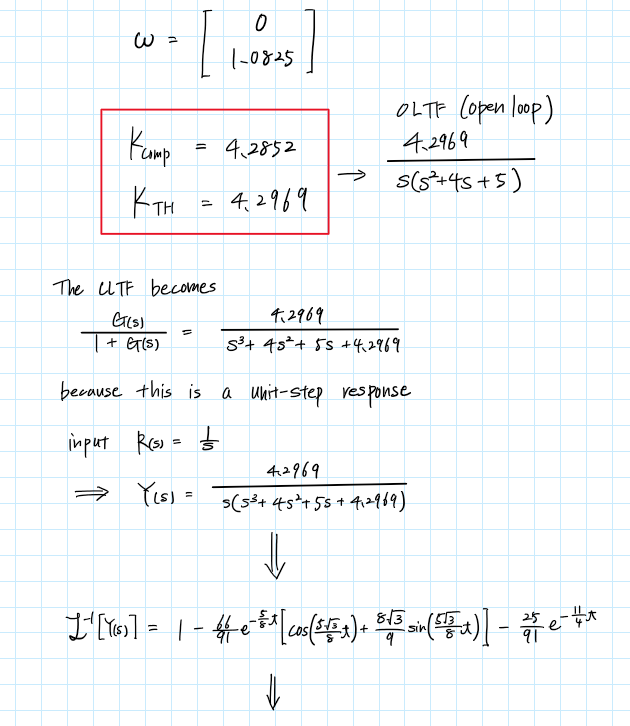 ω = [ 0
1.0825 ]
K_comp = 4.2852
K_TH = 4.2969
→
OLTF (open loop)
4.2969 / s(s²+4s+5)
The CLTF becomes
G(s) / (1 + G(s)) = 4.2969 / (s³ + 4s² + 5s + 4.2969)
because this is a unit-step response
input R(s) = 1/s
⇒ Y(s) = 4.2969 / s(s³ + 4s² + 5s + 4.2969)
⇓
ℒ⁻¹[Y(s)] = 1 − 66/91 e^(−5/8 t) [cos(5√3/8 t) + 8√3/9 sin(5√3/8 t)] − 25/91 e^(−11/4 t)
⇓